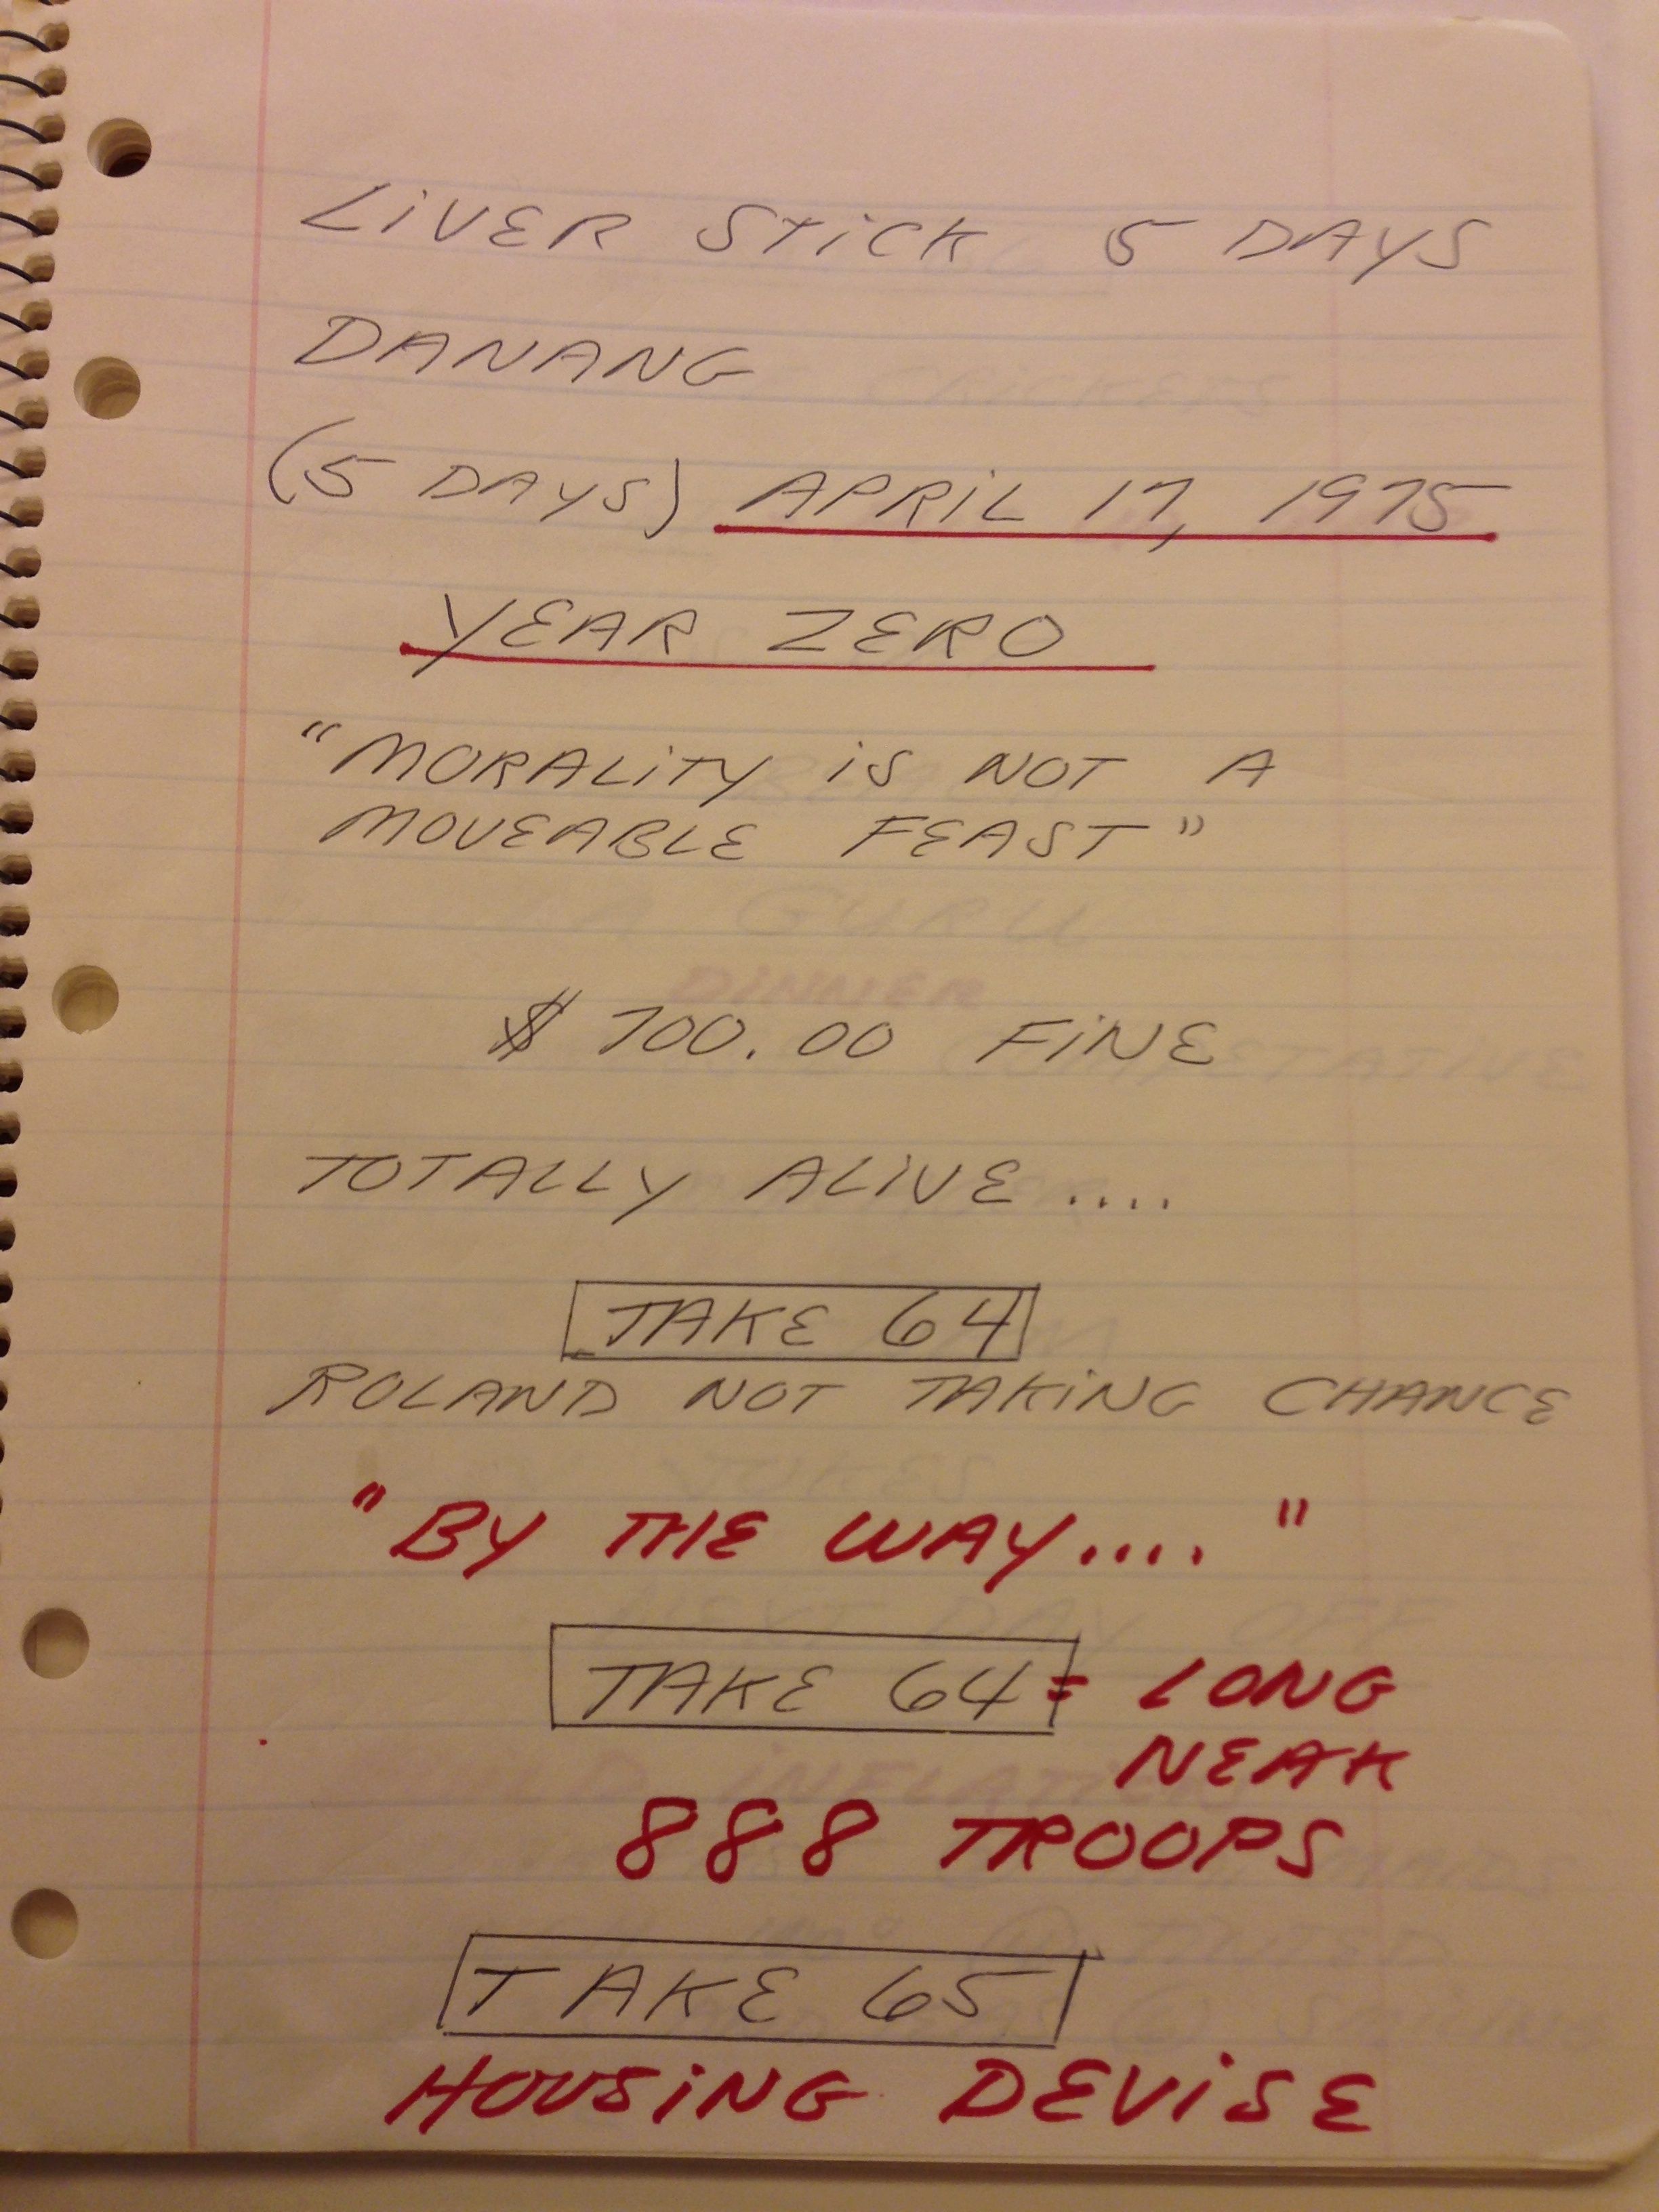 LIVER STICK 5 DAYS
DANANG
(5 DAYS) APRIL 17, 1975
YEAR ZERO
"MORALITY IS NOT A
MOVEABLE FEAST"
$ 700.00 FINE
TOTALLY ALIVE ....
TAKE 64
ROLAND NOT TAKING CHANCE
"BY THE WAY...."
TAKE 64 = LONG
NEAK
888 TROOPS
TAKE 65
HOUSING DEVISE